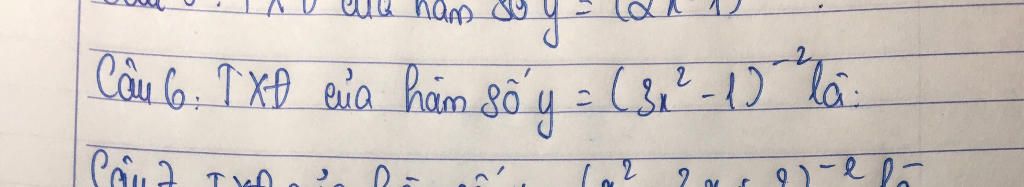 TXĐ của hàm số y = (2x
Câu 6: TXĐ của hàm số y = (3x² - 1)⁻² là:
Câu 7 TXĐ